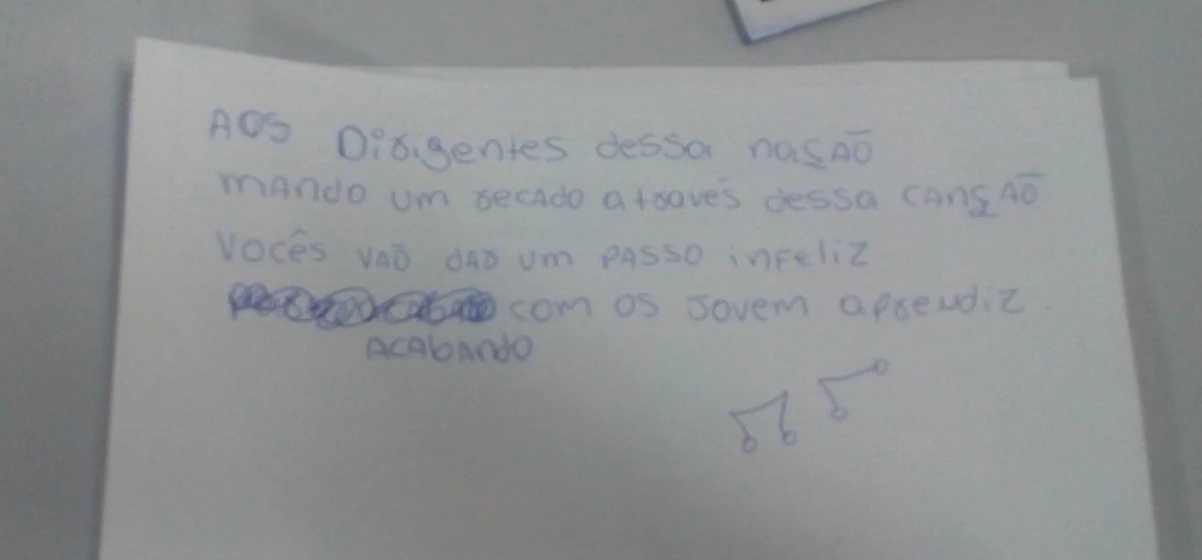 AOS Dirigentes dessa nasÇÃO
MANdO um recAdo através dessa CANÇÃO
Vocês VAÕ dAR um PASSO infeliz
com os Jovem aprendiz
ACAbANdO